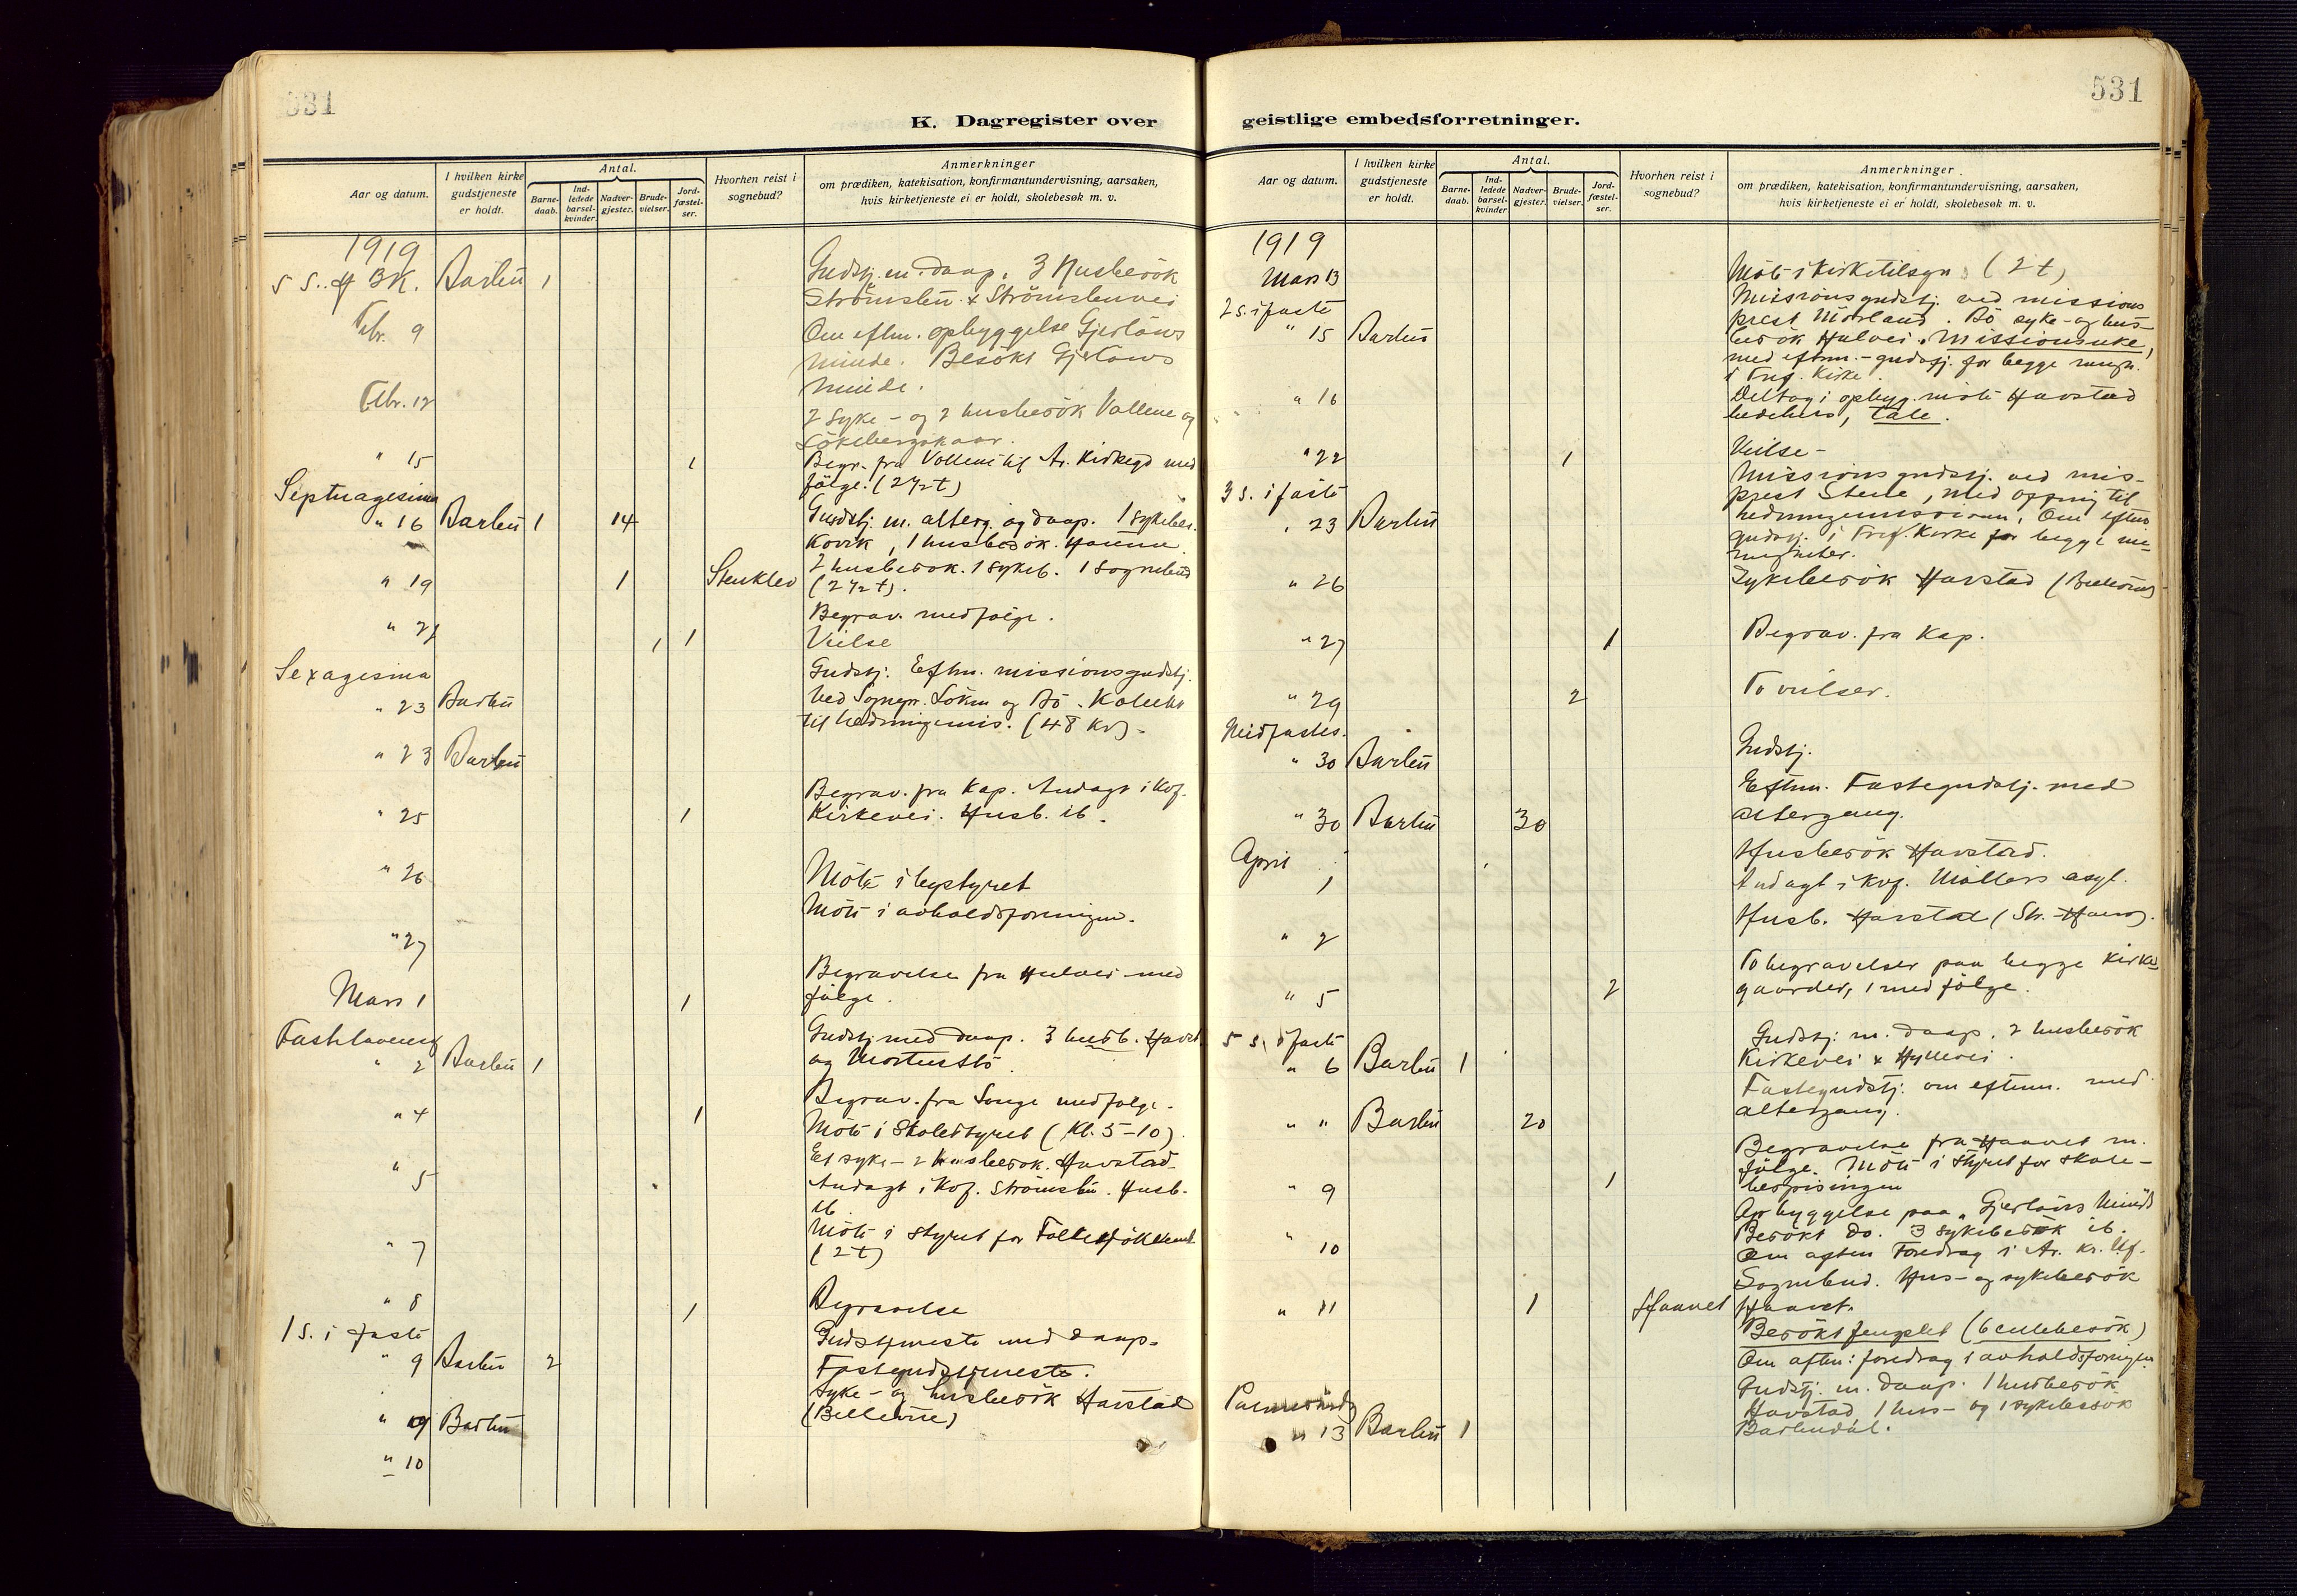 531
K. Dagregister over
Aar og datum.
I hvilken kirke
gudstjeneste
er holdt.
Antal.
Barne-
daab.
Ind-
ledede
barsel-
kvinder.
Nadver-
gjester.
Brude-
vielser.
Jord-
fæstel-
ser.
Hvorhen reist i
sognebud?
Anmerkninger
om prædiken, katekisation, konfirmantundervisning, aarsaken,
hvis kirketjeneste ei er holdt, skolebesøk m. v.
1919
5 S. H 3K. Barbu 1 Gudstj. m. daap. 3 Husbesök
Strömsbu & Strömsbuvei
Febr. 9 Om eftm. opbyggelse Gjerlöws
minde. Besökt Gjerlöws
minde.
Febr. 12 2 syke- og 2 husbesök Vollene og
" 15 1 Begr. fra Vollene til Ar. Kirkegd med
fölge. (2 1/2 t)
Septuagesima
" 16 Barbu 1 14 Gudstj. m. alterg. og daap. 1 sykebes.
1 husbesök.
" 19 1 Stenklev 2 husbesök. 1 sykeb. 1 sognebud
(2 1/2 t).
Begrav. med fölge.
" 21 1 1 Vielse
Sexagesima
Gudstj. Eftm. missionsgudstj.
" 23 Barbu ved Sognepr. og Bö. Kollekt
til hedningemis. (48 Kr).
" 23 Barbu
Begrav. fra Kap. Andagt i Kof.
" 25 1 Kirkevei. Husb. ib.
" 26 Möte i bystyret
Möte i avholdsforeningen.
" 27
Begravelse fra Hulvei med
Mars 1 1 fölge.
Fastelavens
Gudstj. med daap. 3 husb. Havst.
" 2 Barbu 1 og
Begrav. fra Songe med fölge.
" 4 1 Möte i Skolestyret (Kl. 5-10)
Et syke- 2 husbesök. Havstad
" 5 Andagt i Kof. Strömsbu. Husb.
ib.
Möte i styret for
" 7 (2 t)
" 8 1 Begravelse
1 S. i faste Gudstjeneste med daap.
" 9 Barbu 2
Fastegudstjeneste.
Syke- og husbesök Havstad
" 9 Barbu (Bellevue)
" 10
531
geistlige embedsforretninger.
Aar og datum.
I hvilken kirke
gudstjeneste
er holdt.
Antal.
Barne-
daab.
Ind-
ledede
barsel-
kvinder.
Nadver-
gjester.
Brude-
vielser.
Jord-
fæstel-
ser.
Hvorhen reist i
sognebud?
Anmerkninger.
om prædiken, katekisation, konfirmantundervisning, aarsaken,
hvis kirketjeneste ei er holdt, skolebesøk m. v.
1919
Mars 13 Möte i Kirketilsyn (2 t)
2 s. i faste Missionsgudstj. ved missions
prest Mörland. Bö syke- og hus-
" 15 Barbu besök Hulvei. Missionsuke,
med eftm.-gudstj. for begge mengh.
i Tref. Kirke.
" 16 Deltog i opbyg. möte Havstad
bedehus, tale.
" 22 1 Vielse -
3 s. i faste Missionsgudstj. ved mis-
prest Stene, med til
" 23 Barbu hedningemissionen. Om eftm
gudstj. i Tref. Kirke for begge me-
nigheter.
" 26 Sykebesök Havstad (Bellevue)
" 27 1 Begrav. fra Kap.
" 29 2 To vielser.
Midfastes.
" 30 Barbu Gudstj.
Eftm. Fastegudstj. med
" 30 Barbu 30 altergang.
April Husbesök Havstad.
1 Andagt i Kof. Möllers asyl.
Husb. Havstad
" 2
To begravelser paa begge kirke
" 5 2 gaarder, 1 med fölge.
5 s. i faste Gudstj. m. daap. 2 husbesök
" 6 Barbu 1 Kirkevei &
Fastegudstj. om eftm. med
" " Barbu 20 altergang.
Begravelse fra Haavet m.
fölge. Möte i styret for skole-
" 9 1 bespisningen
Opbyggelse paa "Gjerlöws Minde
Besökt do. 3 sykebesök ib.
" 10 Om aften Foredrag i Ar. Kr. Uf.
Sognebud. Hus- og sykebesök
" 11 1 Haavet Haavet.
Besökt fengslet (6 cellebesök)
Om aften: foredrag i avholdsforeningen
Gudstj. m. daap. 1 husbesök
Palmesönd. Havstad 1 hus- og 1 sykebesök
" 13 Barbu 1 Barbudal.